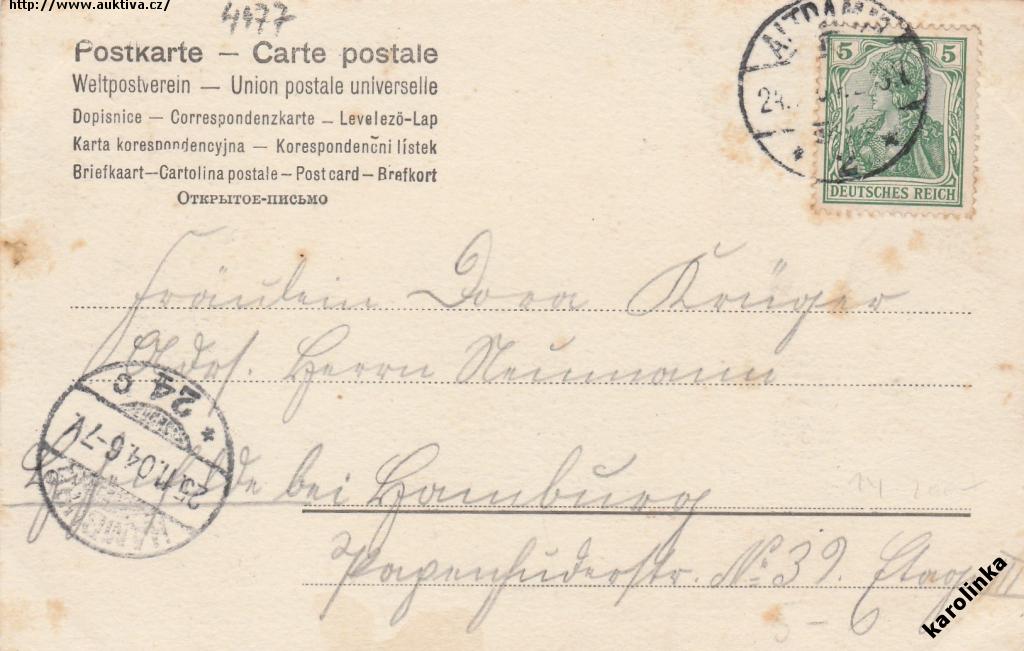 http://www.auktiva.cz/
4977
Postkarte — Carte postale
Weltpostverein — Union postale universelle
Dopisnice — Correspondenzkarte — Levelező-Lap
Karta korespondencyjna — Korespondenčni lístek
Briefkaart—Cartolina postale—Post card—Brefkort
Открытое-письмо
5 5
DEUTSCHES REICH
Fräulein Dora Krüger
Adrs. Herrn Neumann
bei Hamburg
Papenhuderstr. No 39. Etage III
5-6
* 24 C
25.11.04. 6-7 V.
HAMBURG
karolinka